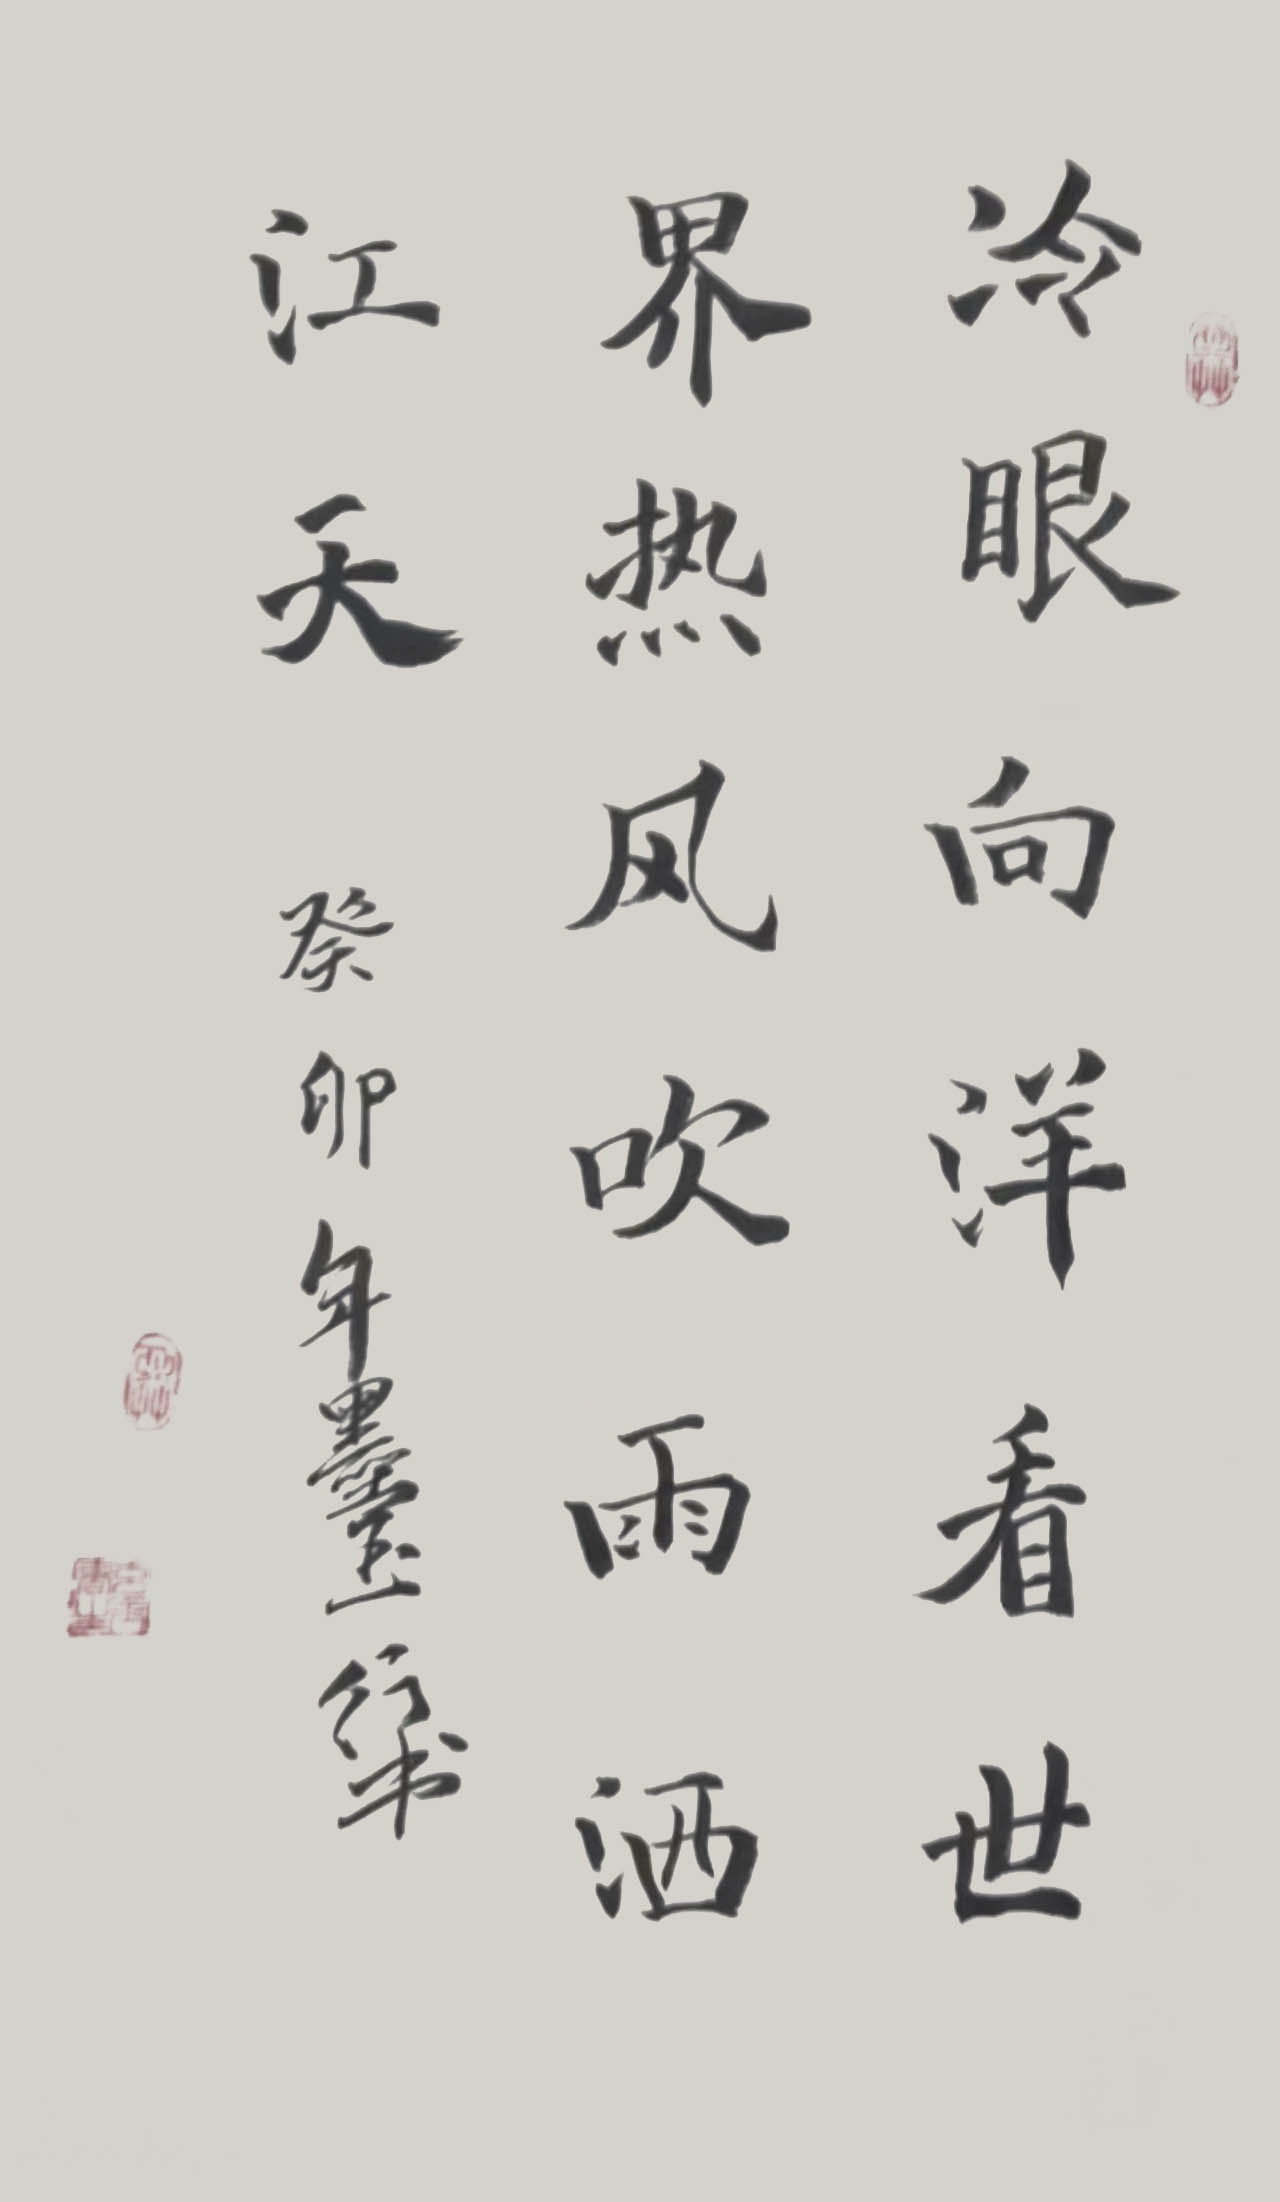 冷眼向洋看世
界热风吹雨洒
江天
癸卯年墨
行书